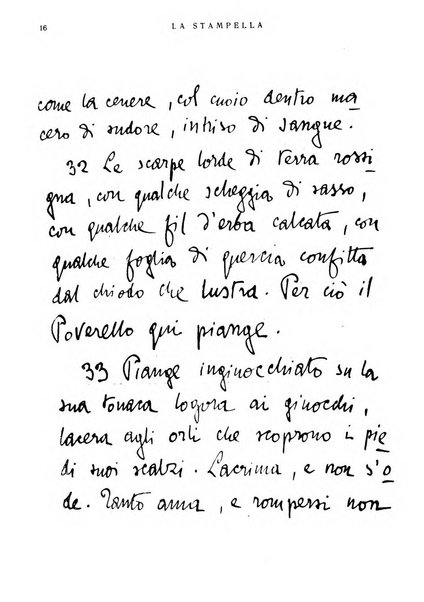 16
LA STAMPELLA
come la cenere, col cuoio dentro ma
cero di sudore, intriso di sangue.
32 Le scarpe lorde di terra rossi
gna, con qualche scheggia di sasso,
con qualche fil d'erba calcata, con
qualche foglia di quercia confitta
dal chiodo che lustra. Per ciò il
Poverello qui piange.
33 Piange inginocchiato su la
sua tonaca logora ai ginocchi,
lacera agli orli che scoprono i pie
di suoi scalzi. Lacrima, e non s'o
de. Tanto ama, e rompersi non